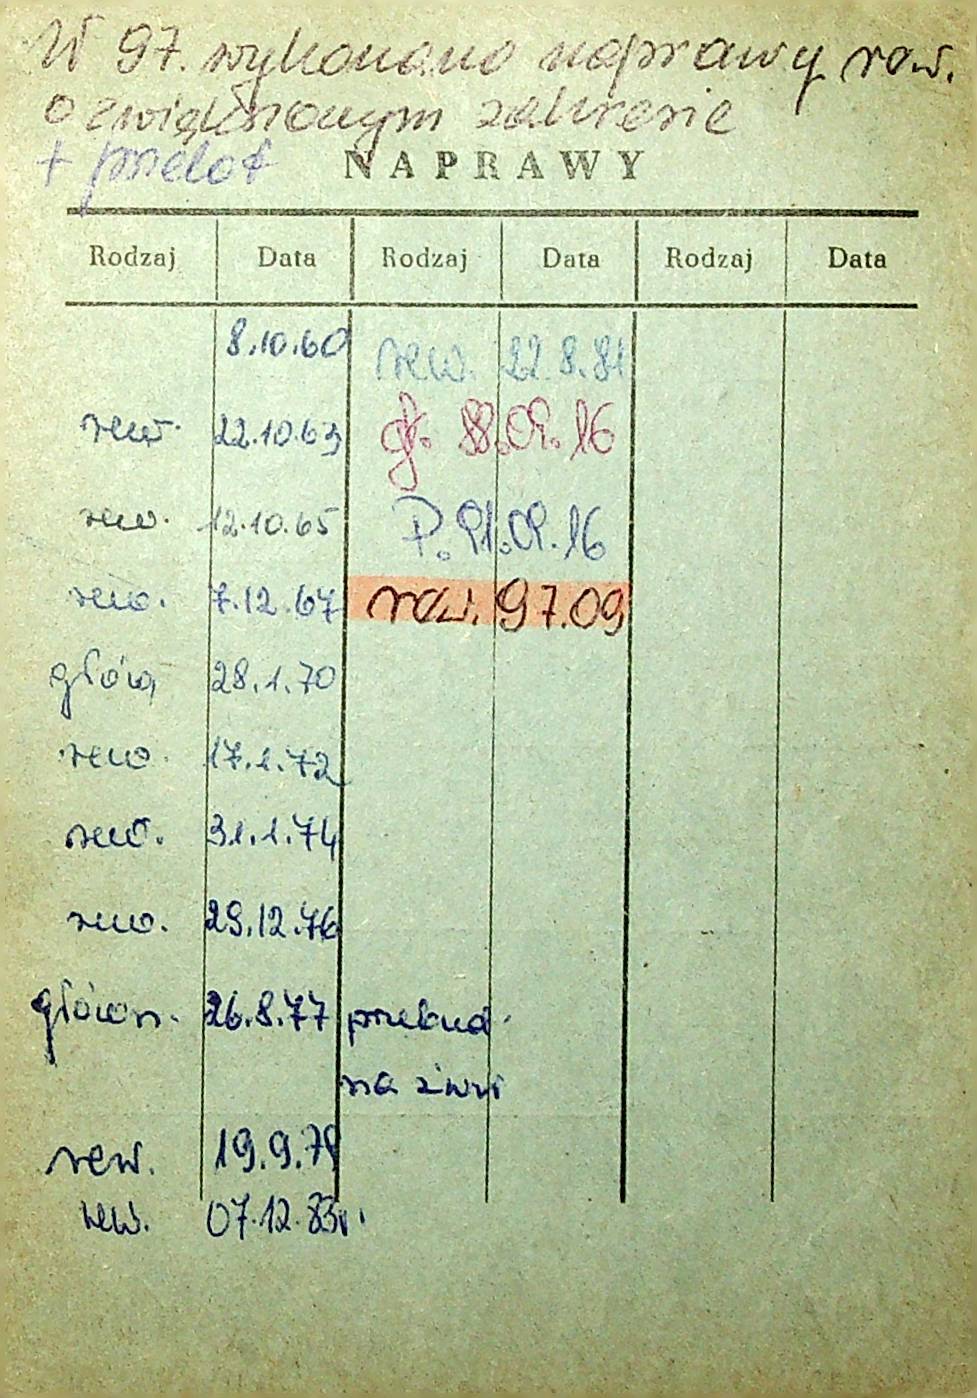 W 97. wykonano naprawy rew.
o zwiększonym zakresie
+ przelot
NAPRAWY
Rodzaj Data Rodzaj Data Rodzaj Data
8.10.60 rew. 22.8.81
rew. 22.10.63 gł. 88.09.16
rew. 12.10.65 P. 91.09.16
rew. 7.12.67 rew. 97.09
główn 28.1.70
rew. 17.1.72
rew. 31.1.74
rew. 29.12.76
główn. 26.8.77 przebud.
na żwir
rew. 19.9.79
rew. 07.12.83r.